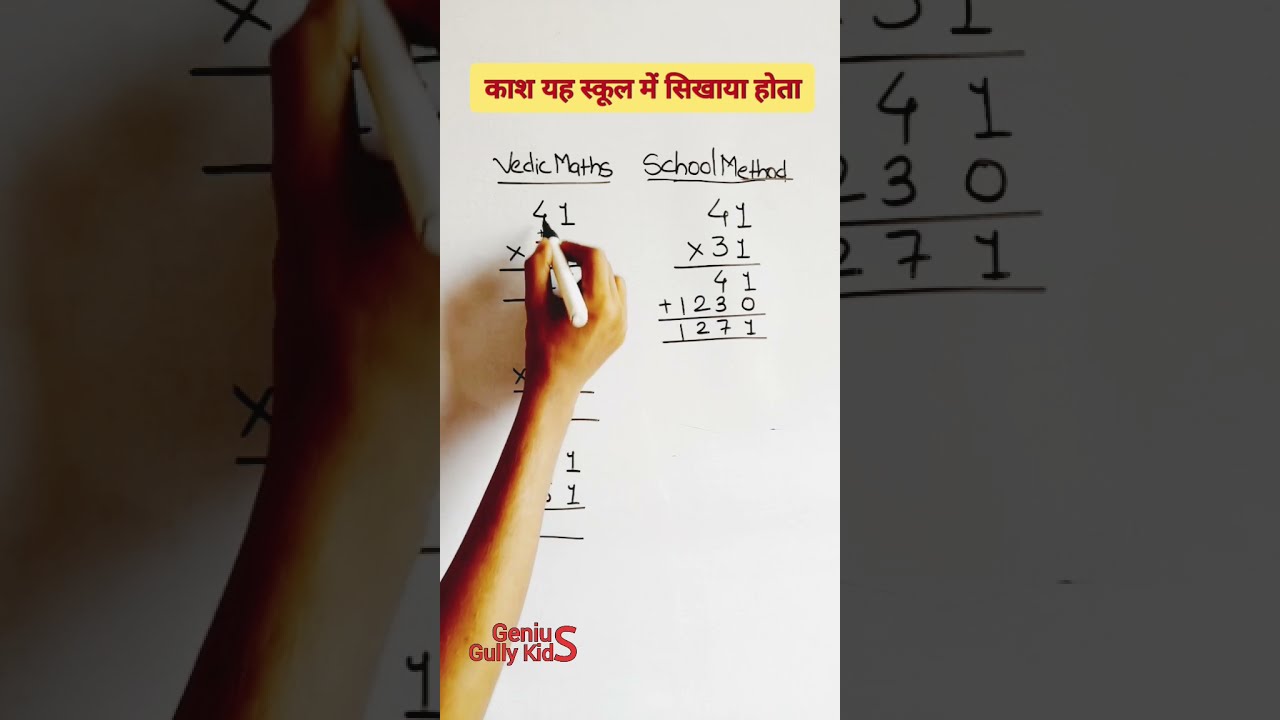 काश यह स्कूल में सिखाया होता
Vedic Maths
41
×
×
1
1
School Method
41
×31
41
+1230
1271
Genius
Gully Kids
31
41
230
271
×
×
1